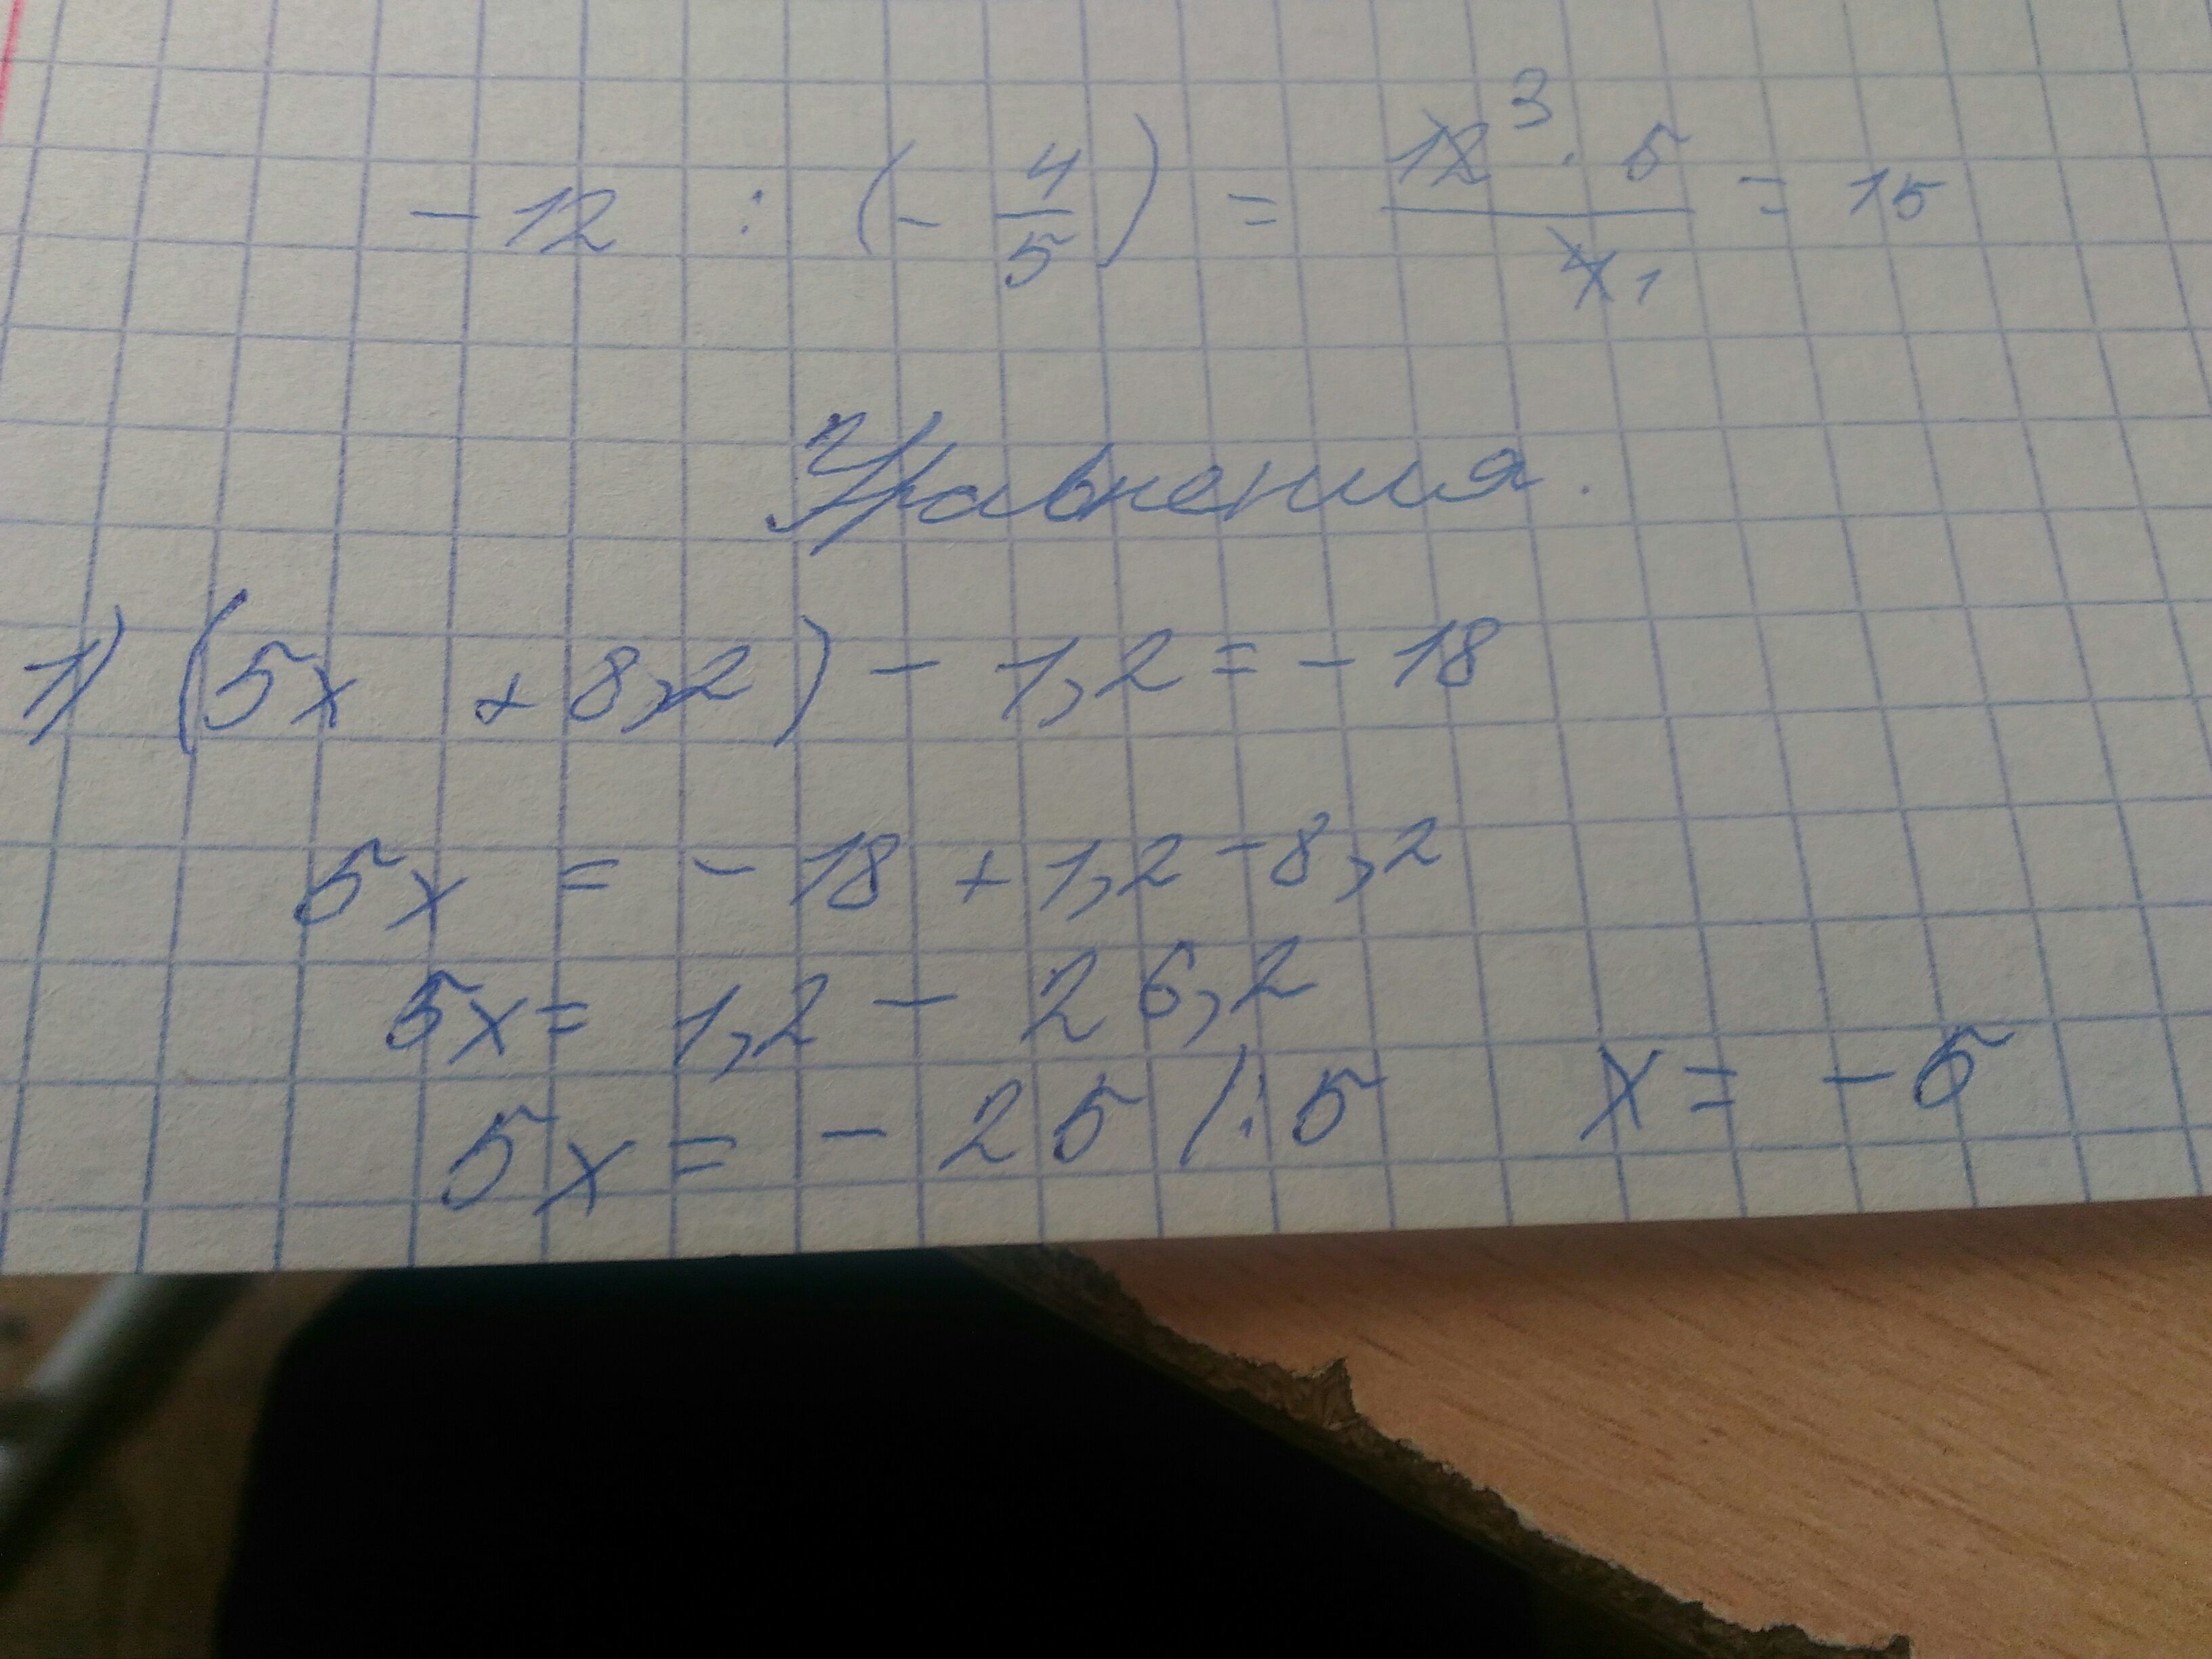 -12 : (- 4/5) = 12³ · 5 / 4 1 = 15
Уравнения.
1) (5x + 8,2) - 1,2 = - 18
5x = - 18 + 1,2 - 8,2
5x = 1,2 - 26,2
5x = - 25 /: 5 x = - 5